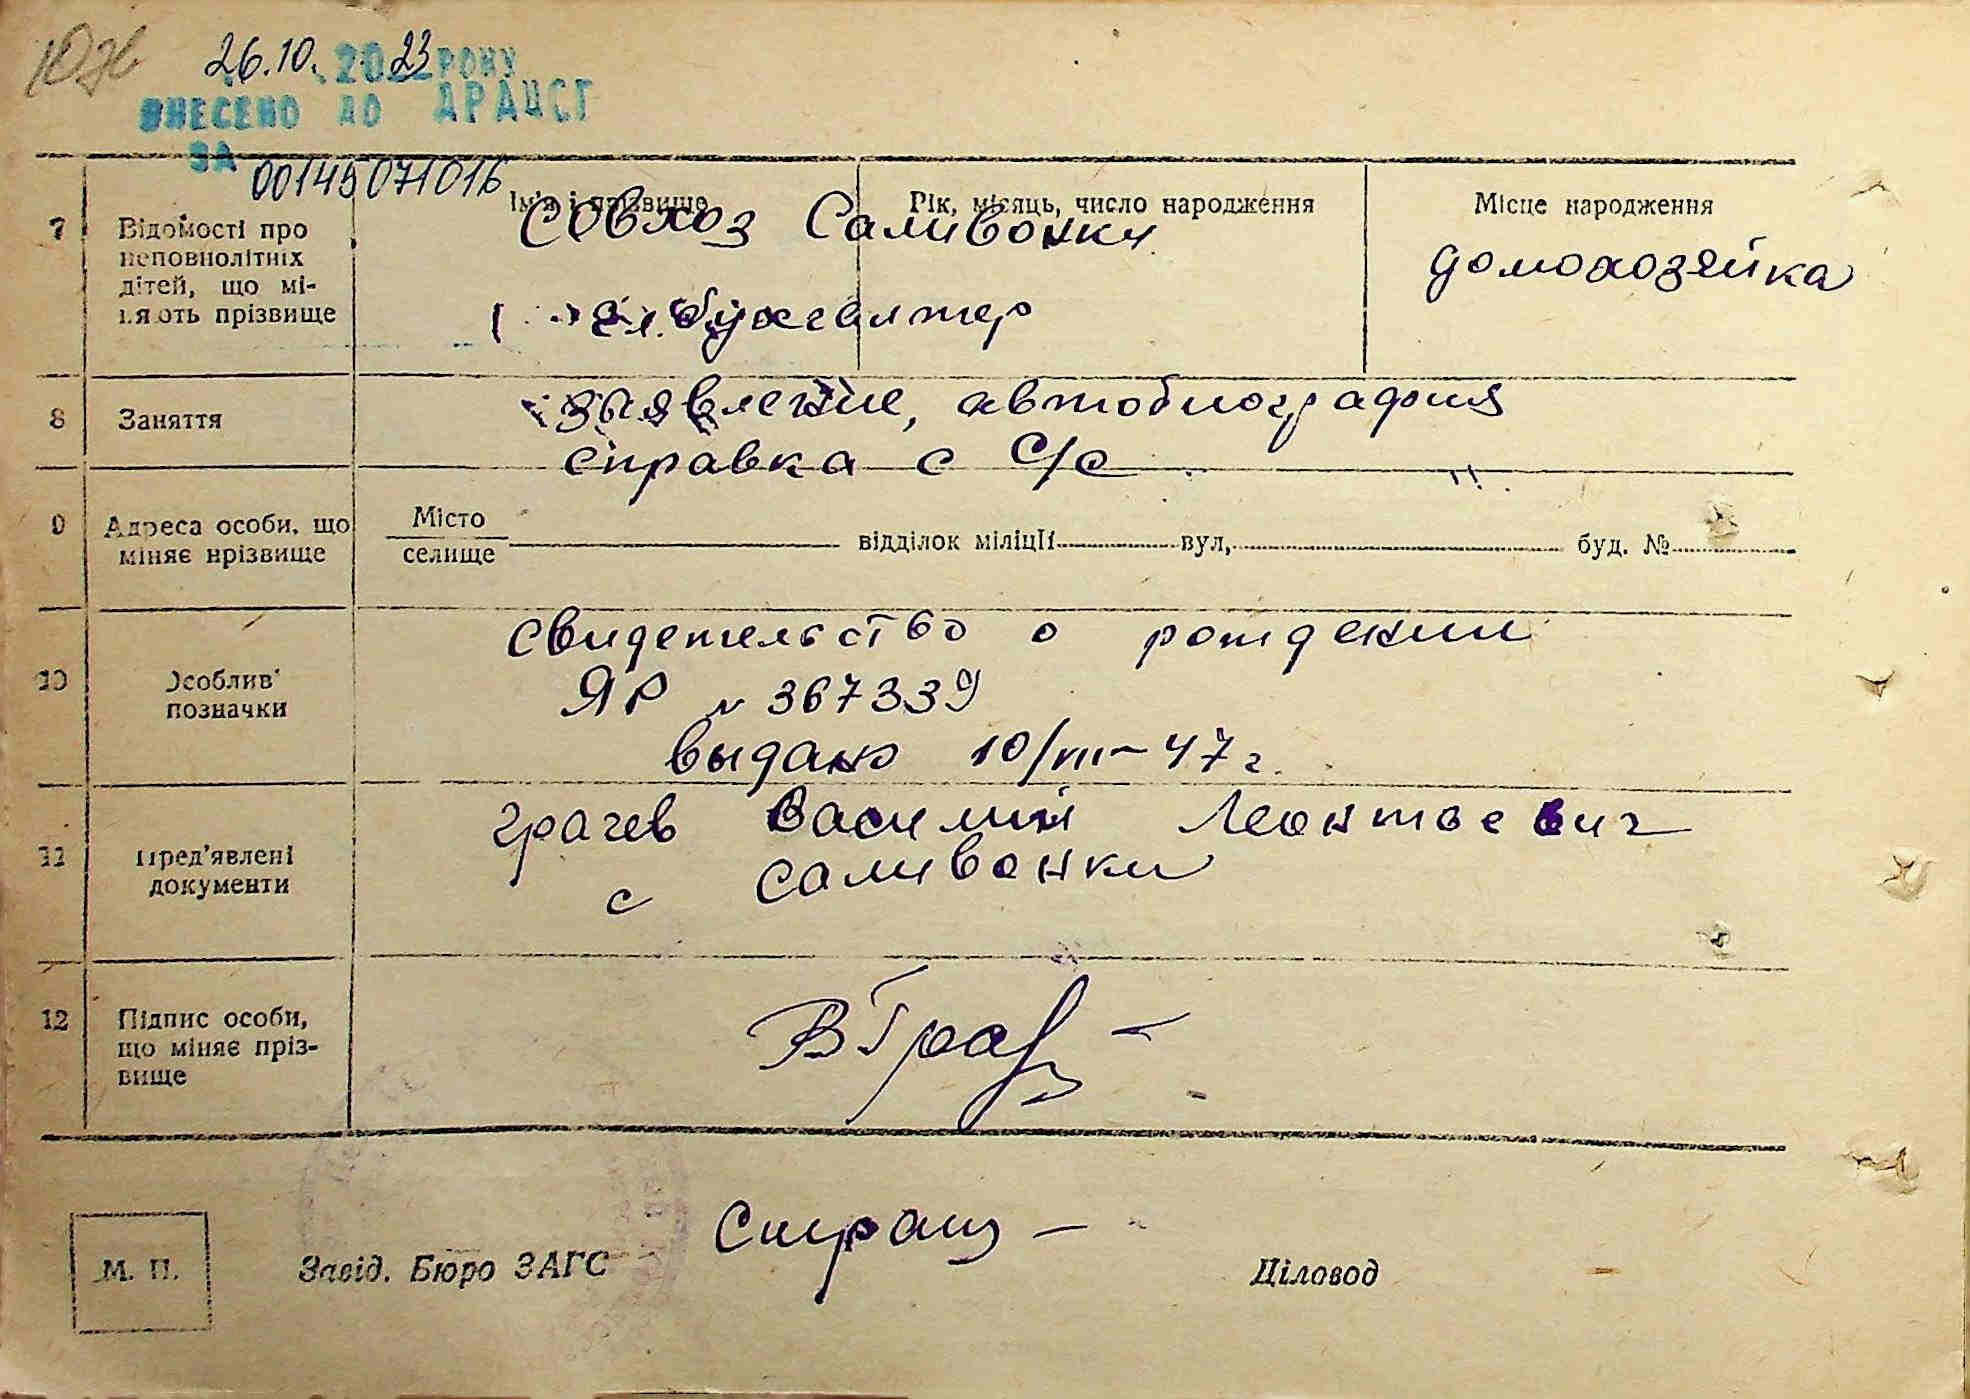 26.10. 2023 РОКУ
ВНЕСЕНО ДО ДРАЦСГ
ЗА 00145071016
Ім'я і прізвище
Рік, місяць, число народження
Місце народження
7 Відомості про неповнолітніх дітей, що міняють прізвище
совхоз Саливонки
домохозяйка
гл. бухгалтер
8 Заняття
заявление, автобиография
справка с С/с
9 Адреса особи, що міняє прізвище
Місто
селище
відділок міліції вул. буд. №
свидетельство о рождении
10 Особливі позначки
ЯР № 367339
выдано 10/III-47 г.
11 Пред'явлені документи
Грачев Василий Леонтьевич
с Саливонки
12 Підпис особи, що міняє прізвище
М. П.
Завід. Бюро ЗАГС
Діловод